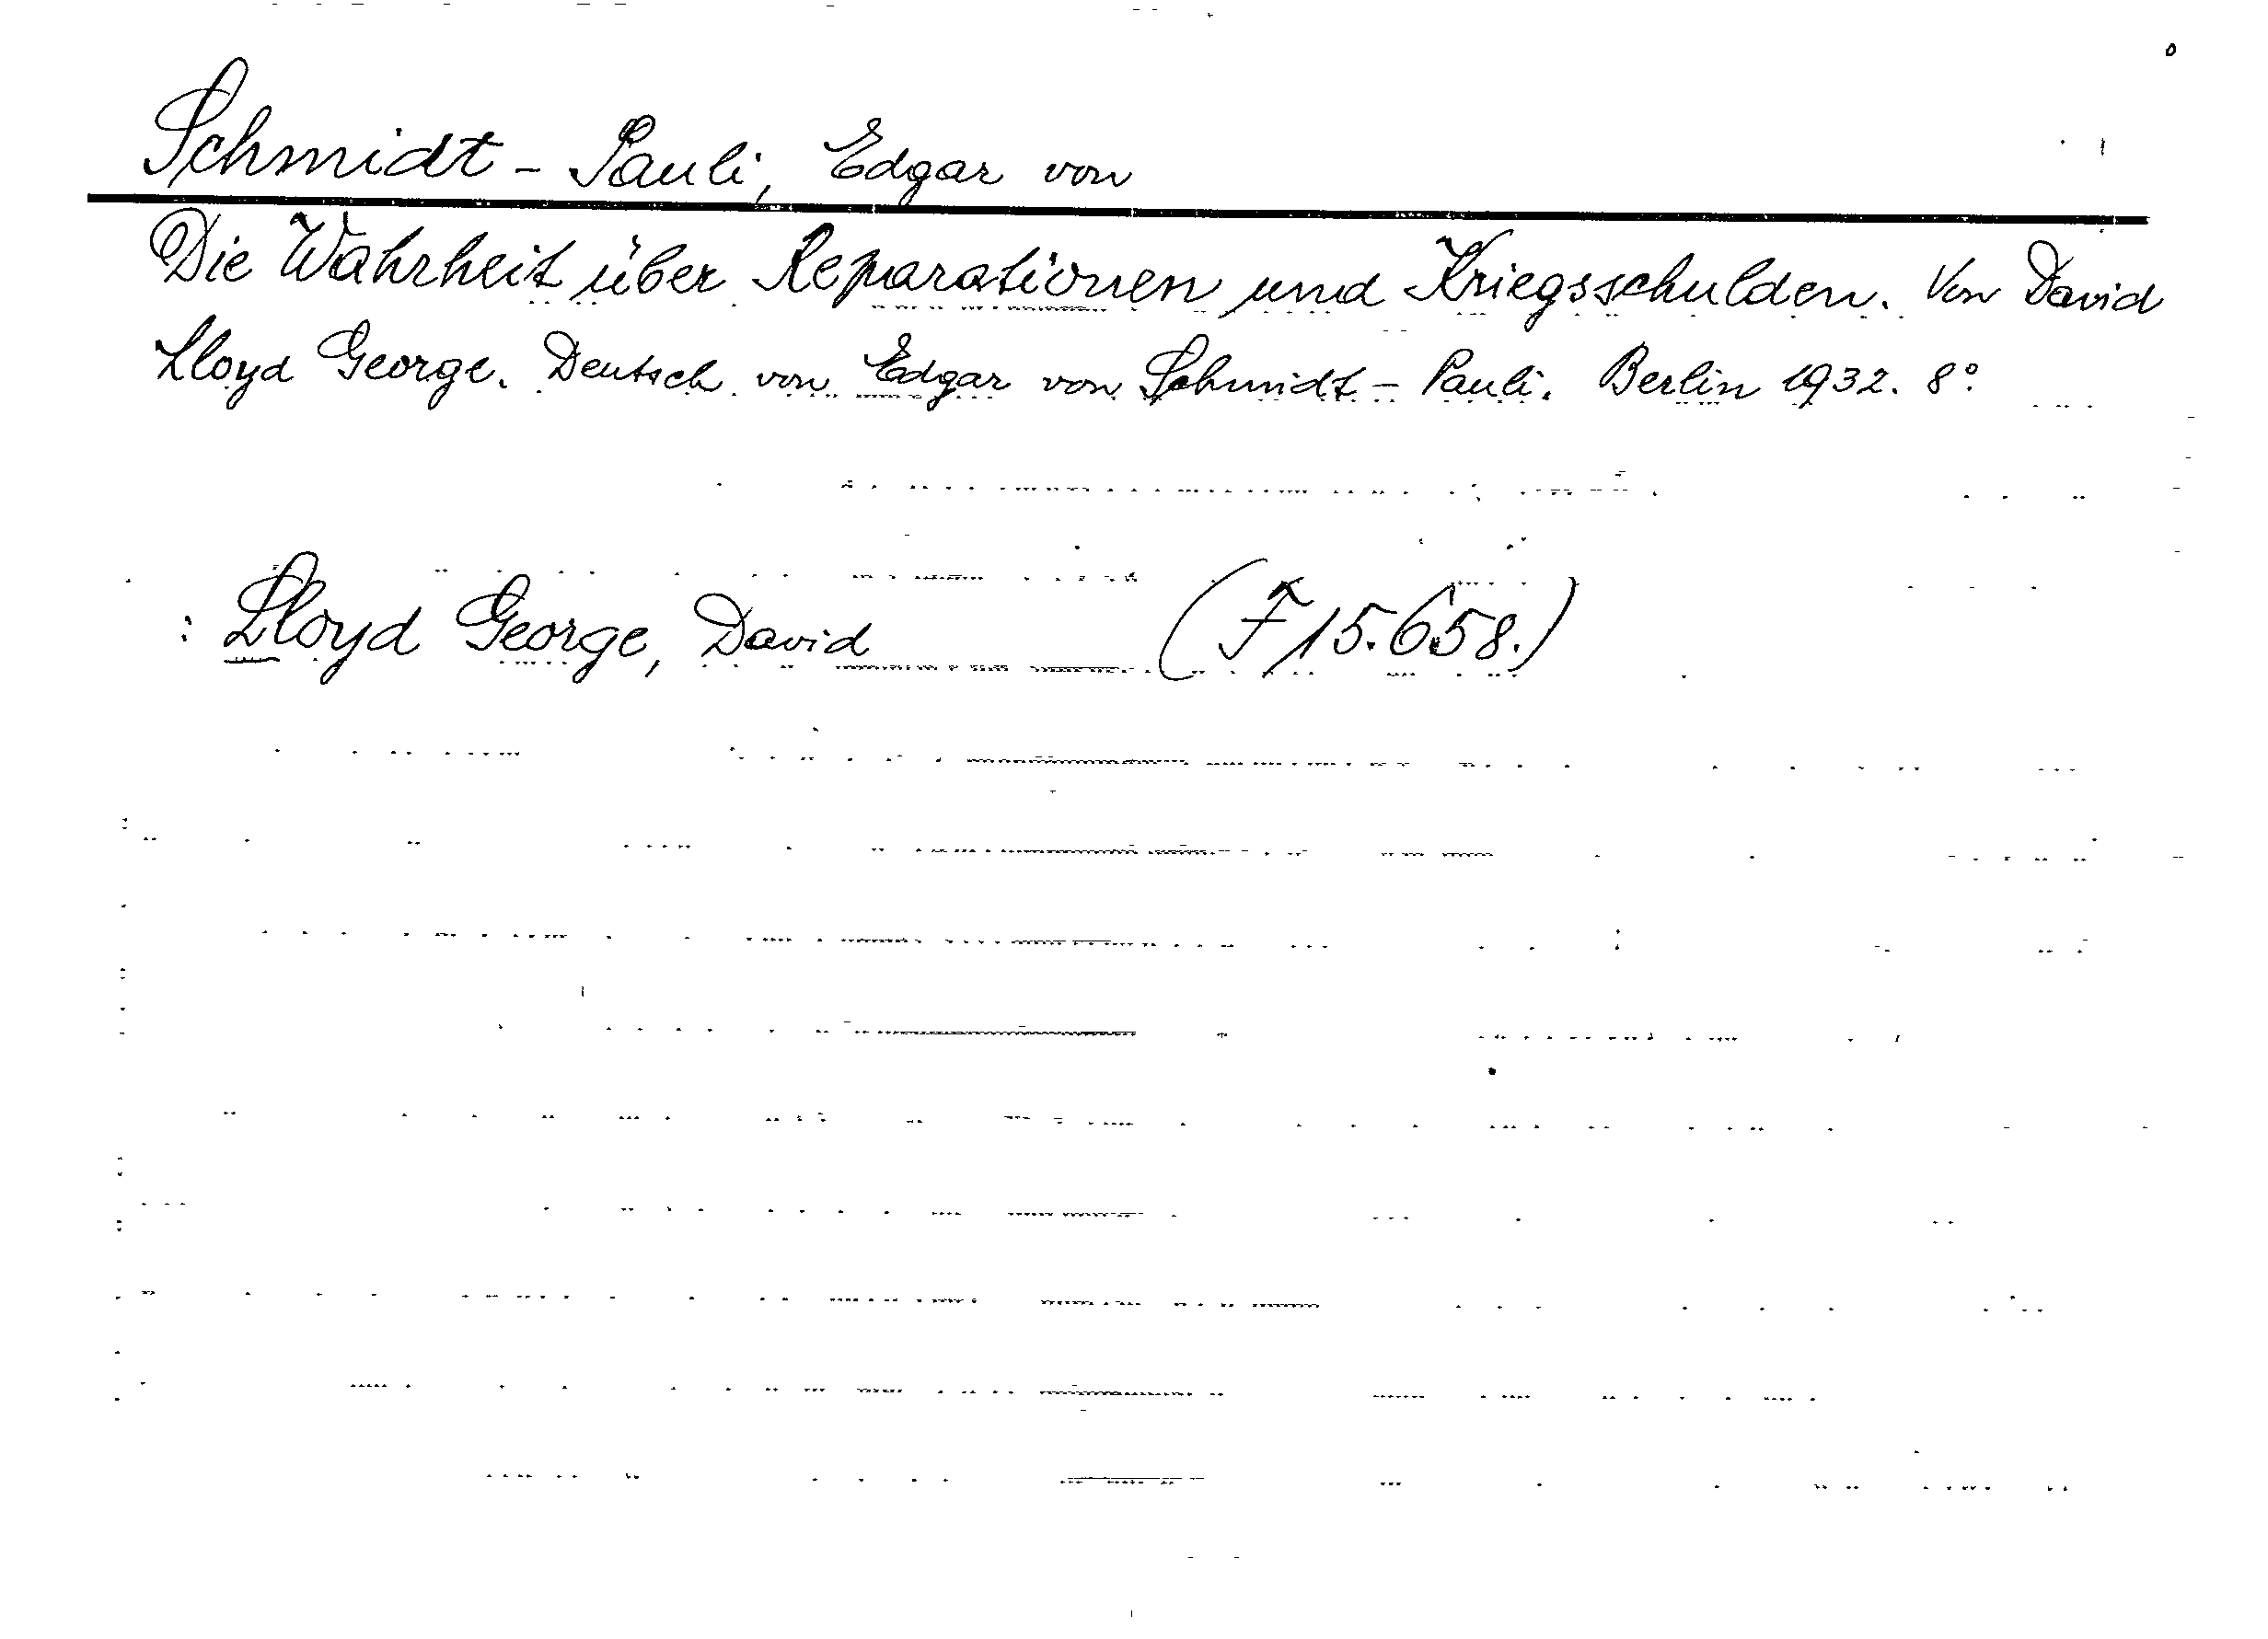 Schmidt - Pauli, Edgar von
Die Wahrheit über Reparationen und Kriegsschulden. Von David
Lloyd George. Deutsch von Edgar von Schmidt - Pauli. Berlin 1932. 8°.
: Lloyd George, David (F 15.658.)